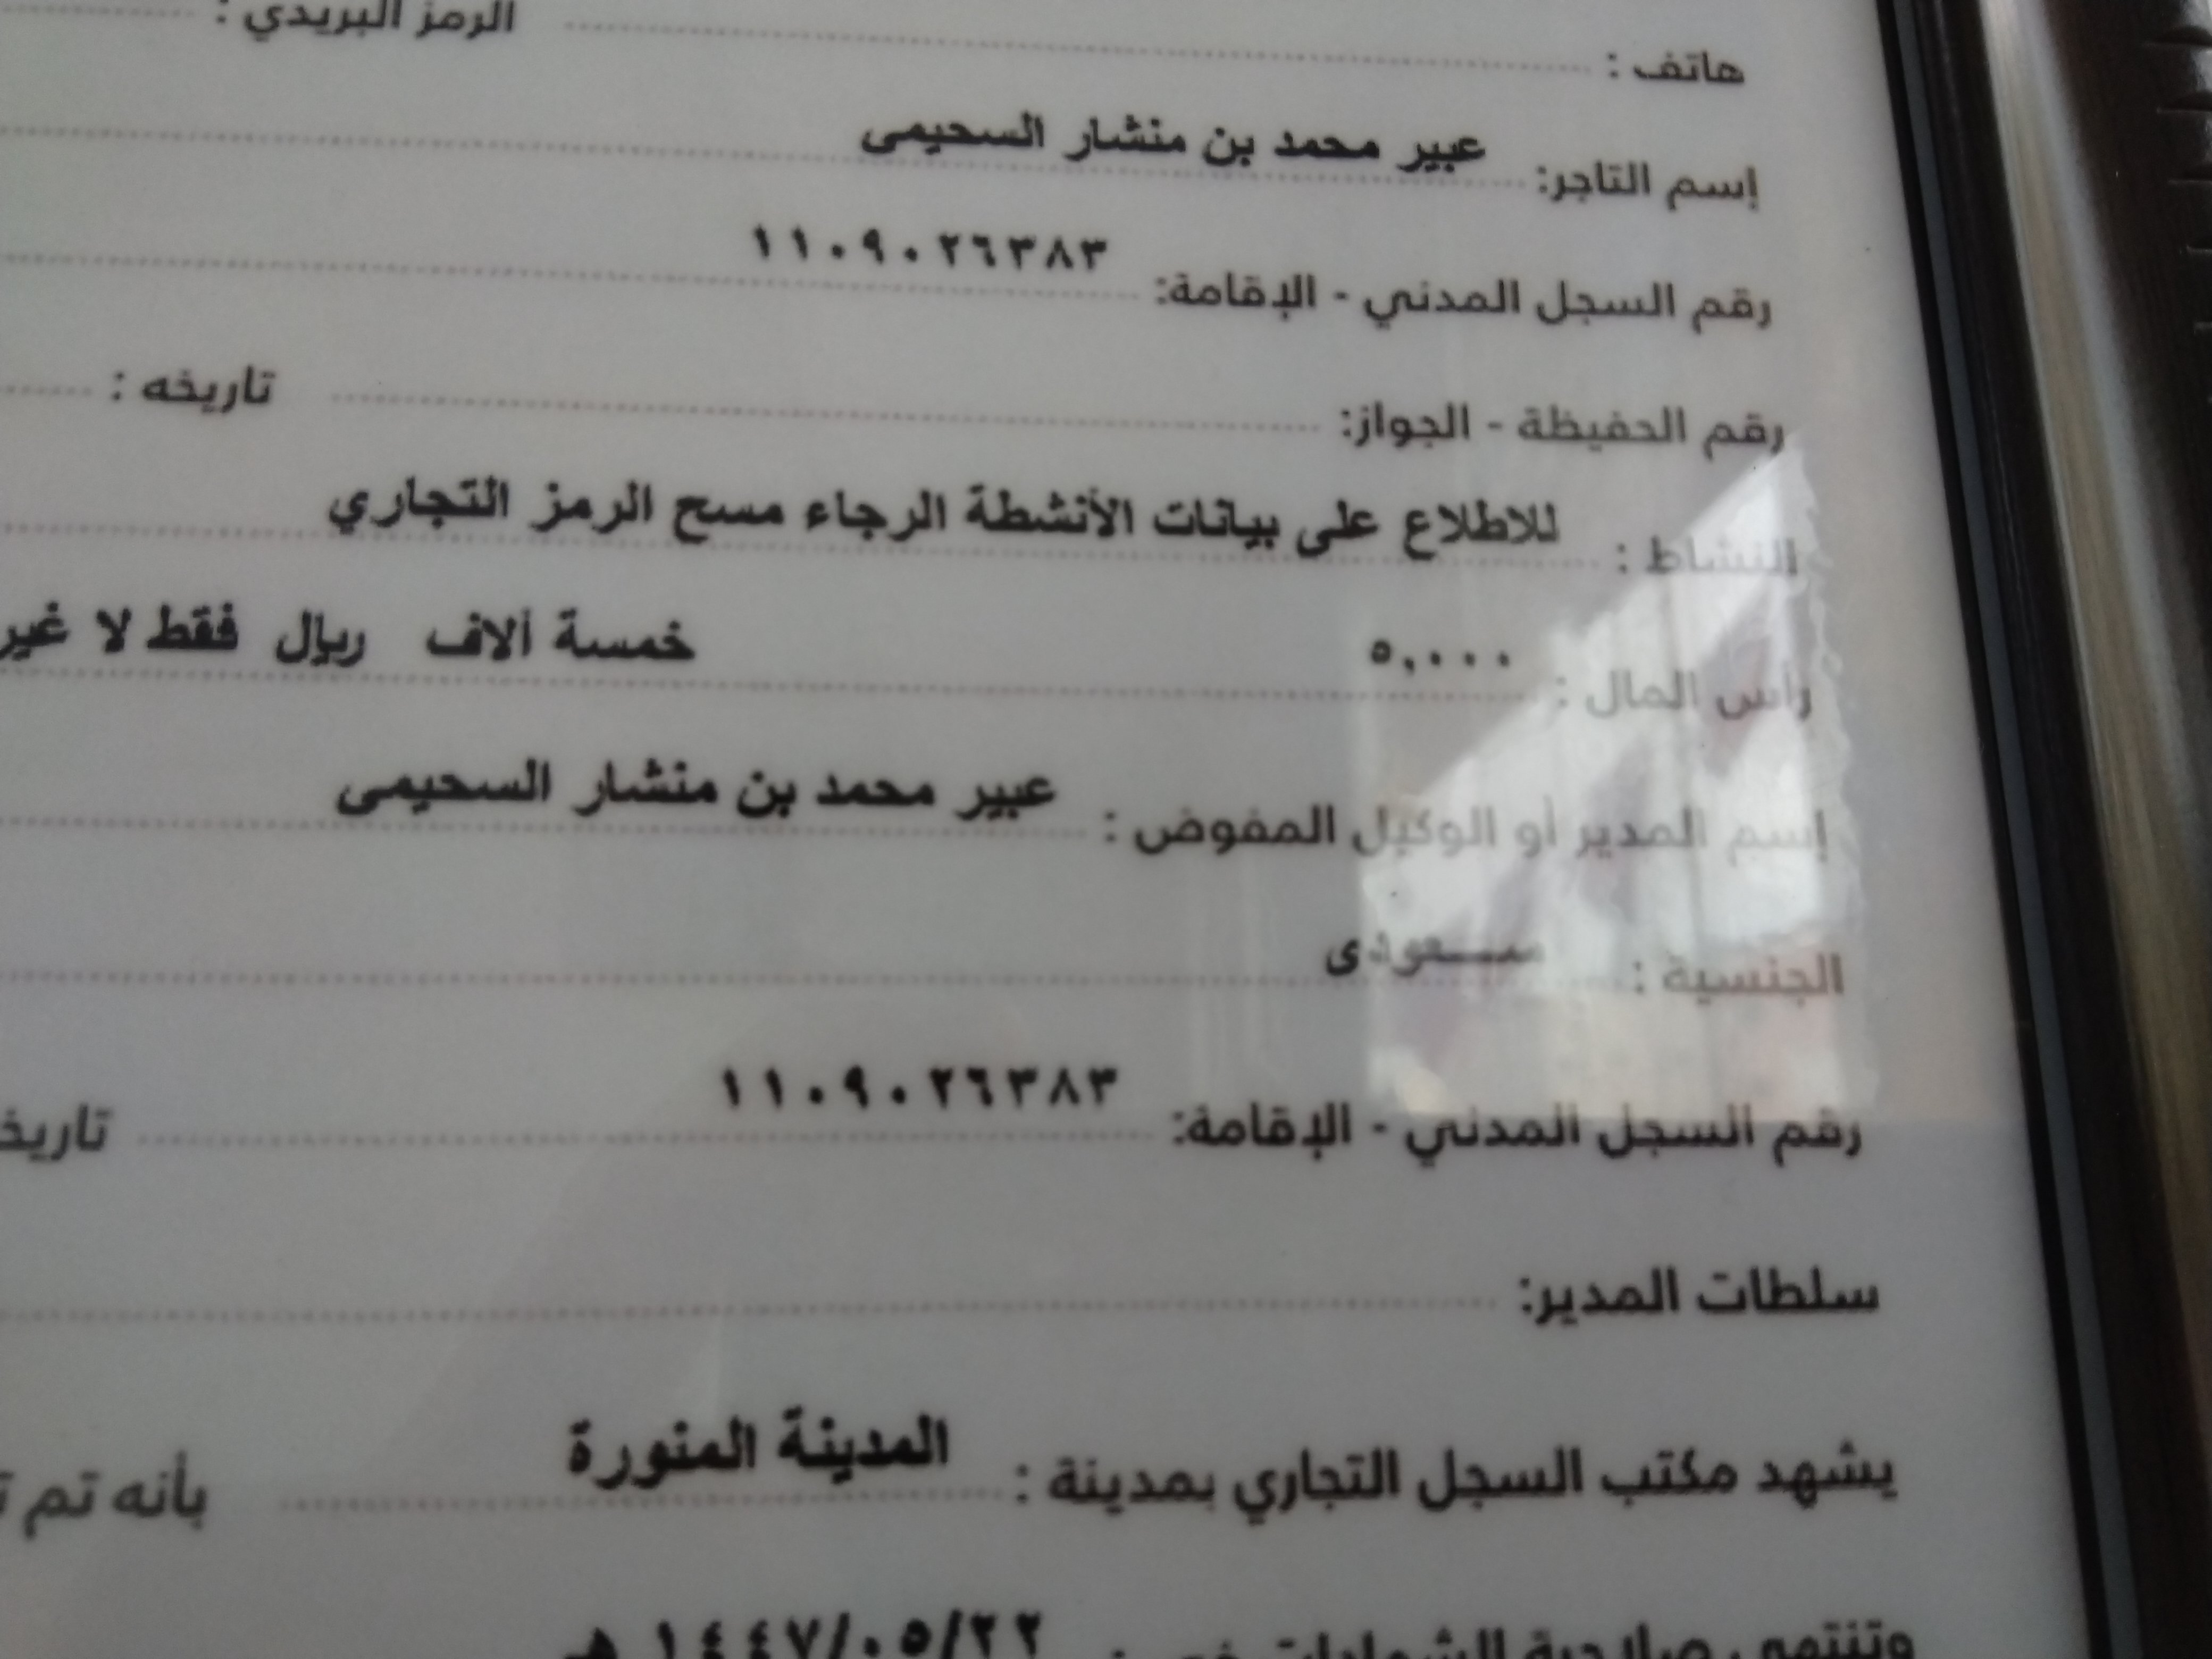 هاتف : الرمز البريدي :
إسم التاجر: عبير محمد بن منشار السحيمى
رقم السجل المدني - الإقامة: ١١٠٩٠٢٦٣٨٣
رقم الحفيظة - الجواز: تاريخه :
النشاط : للاطلاع على بيانات الأنشطة الرجاء مسح الرمز التجاري
رأس المال : ٥,٠٠٠ خمسة ألاف ريال فقط لا غير
إسم المدير أو الوكيل المفوض : عبير محمد بن منشار السحيمى
الجنسية : سعودى
رقم السجل المدني - الإقامة: ١١٠٩٠٢٦٣٨٣
سلطات المدير:
يشهد مكتب السجل التجاري بمدينة : المدينة المنورة بأنه تم
وتنتهي صلاحية الشهادة في : ١٤٤٧/٠٥/٢٢ هـ